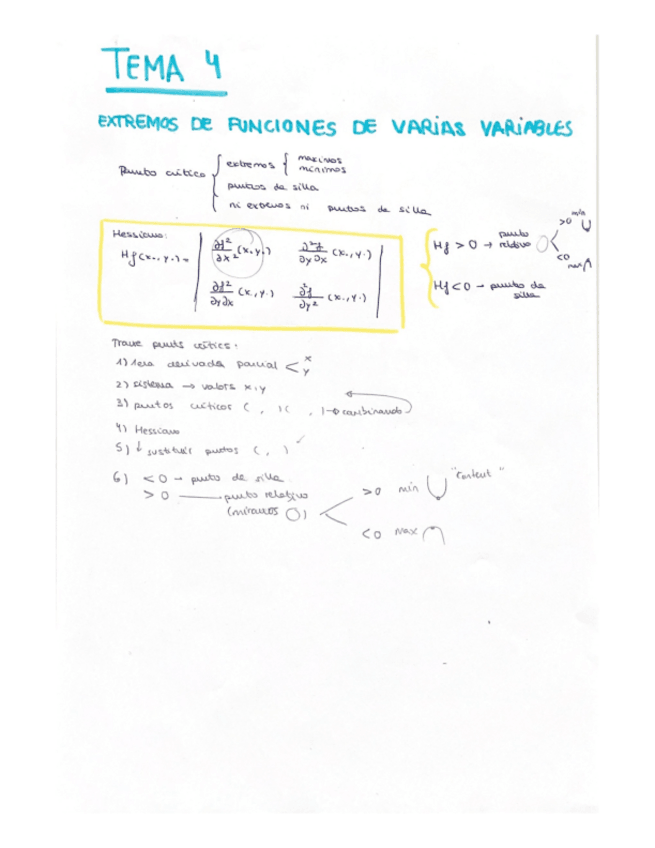 TEMA 4
EXTREMOS DE FUNCIONES DE VARIAS VARIABLES
Punto crítico { extremos { maximos
minimos
puntos de silla
ni extremos ni puntos de silla
Hessiano:
Hf(x₀, y₀) = | ∂f²/∂x² (x₀, y₀) ∂²f/∂y∂x (x₀, y₀) |
| ∂f²/∂y∂x (x₀, y₀) ∂²f/∂y² (x₀, y₀) |
Hf > 0 → punto relativo ○ < >0 min ∪
<0 max ∩
Hf < 0 → punto de silla
Troure punts crítics:
1) 1era derivada parcial < x
y
2) sistema → valors x, y
3) puntos críticos ( , )( , ) → combinando
4) Hessiano
5) ↓ sustituir puntos ( , ) ✓
6) < 0 → punto de silla
> 0 — punto relativo
(miramos ○) < >0 min ∪ "content"
<0 max ∩